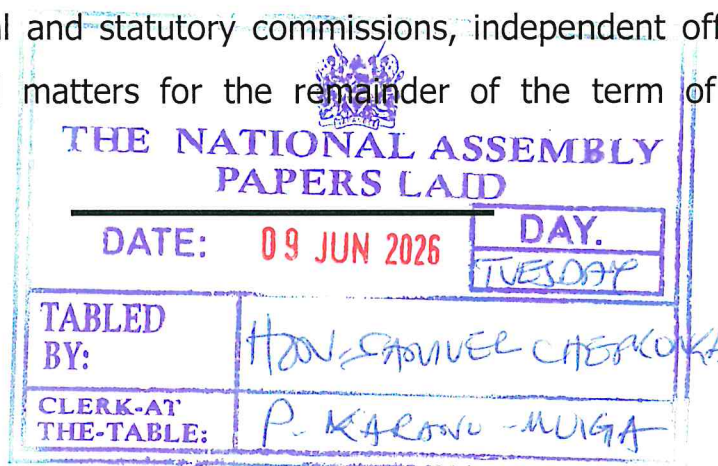 al and statutory commissions, independent off
matters for the remainder of the term of
THE NATIONAL ASSEMBLY
PAPERS LAID
DATE: 09 JUN 2026
DAY.
TUESDAY
TABLED BY: HON. SAMUEL CHEPKONGA
CLERK-AT THE-TABLE: P. KARANU-MUIGA